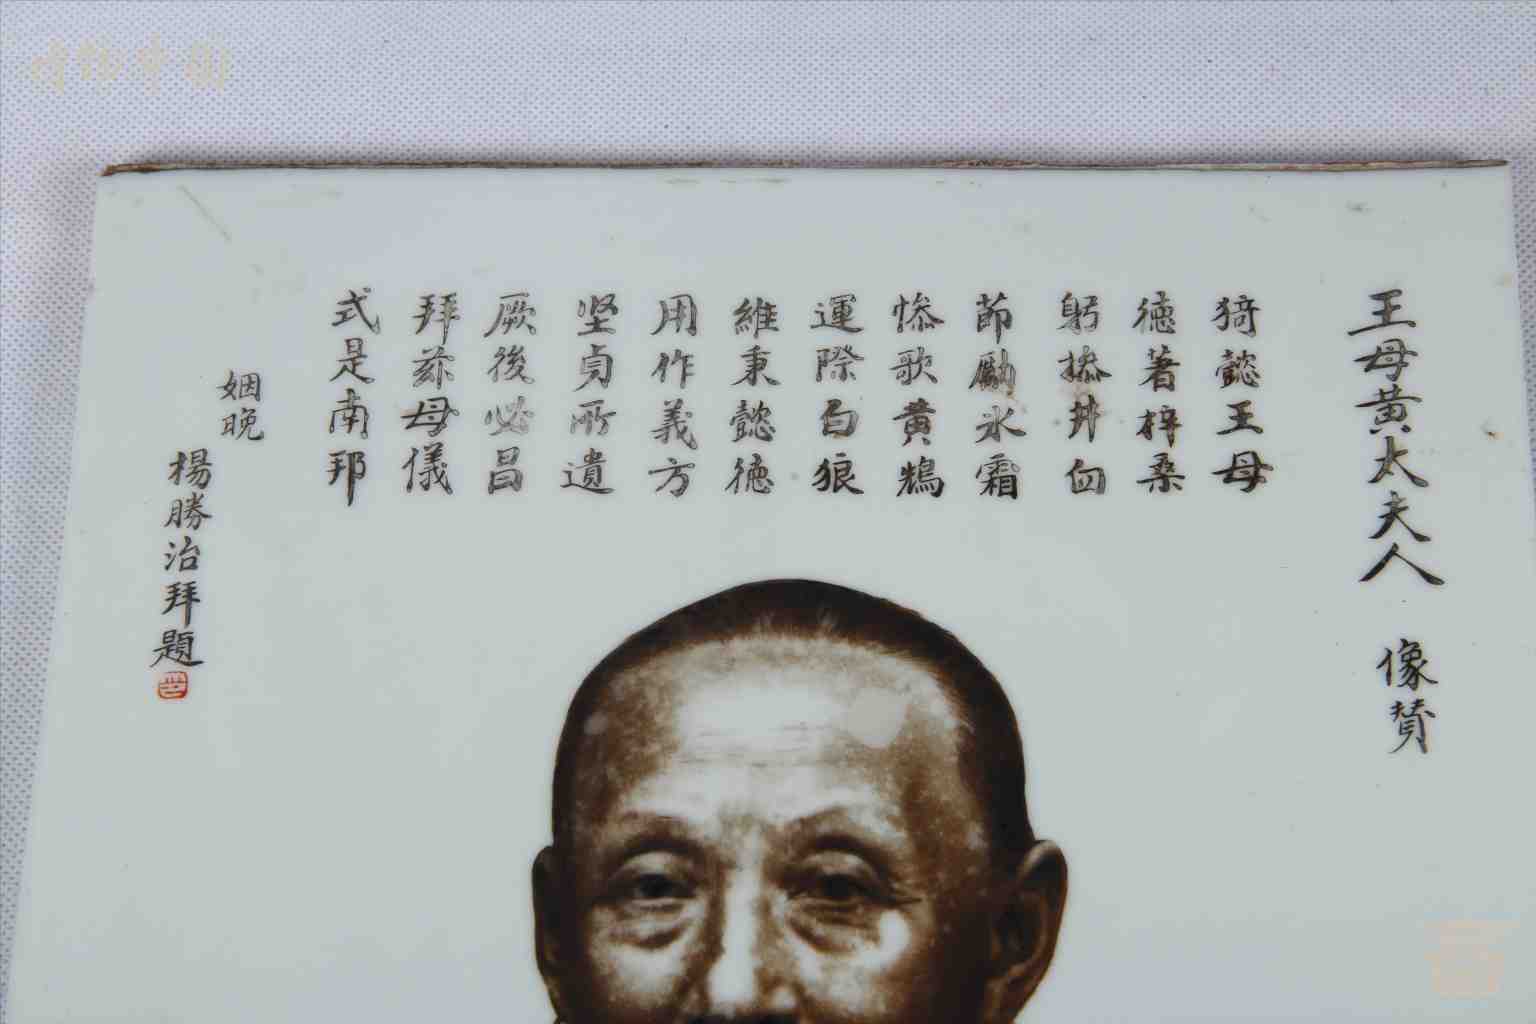 王母黃太夫人 像贊
猗懿王母
德著梓桑
躬操井臼
節勵氷霜
惨歌黄鵠
運際白狼
維秉懿德
用作義方
坚貞所遺
厥後必昌
拜兹母儀
式是南邦
姻晚
楊勝治拜題